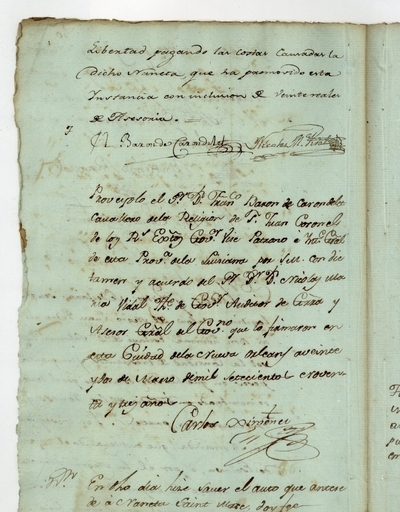 Libertad pagando las costas causadas la
dicho Naneta, que ha promovido esta
Instancia con inclusion de veinte reales
de Asesoria.
El Baron de Carondelet Nicolas Mª Vidal
Proveyolo el Sor Dn Franco Baron de Carondelet
Cavallero de la Religion de Sn Juan Coronel
de los Rs Extos Govor Vice Patrono é Inte Gral
de esta Prova de la Luisiana por S.M. con dic
tamen y acuerdo del Sr Dn Nicolas Ma
ria Vidal The de Govr Auditor de Grra y
Asesor Gral del Govno que lo firmaron en
esta Ciudad de la Nueva Orleans a veinte
y dos de Marzo de mil setecientos noven
ta y tres años
Carlos Ximenez
En dho dia hize saver el auto que antece
de a Naneta Saint doy fee